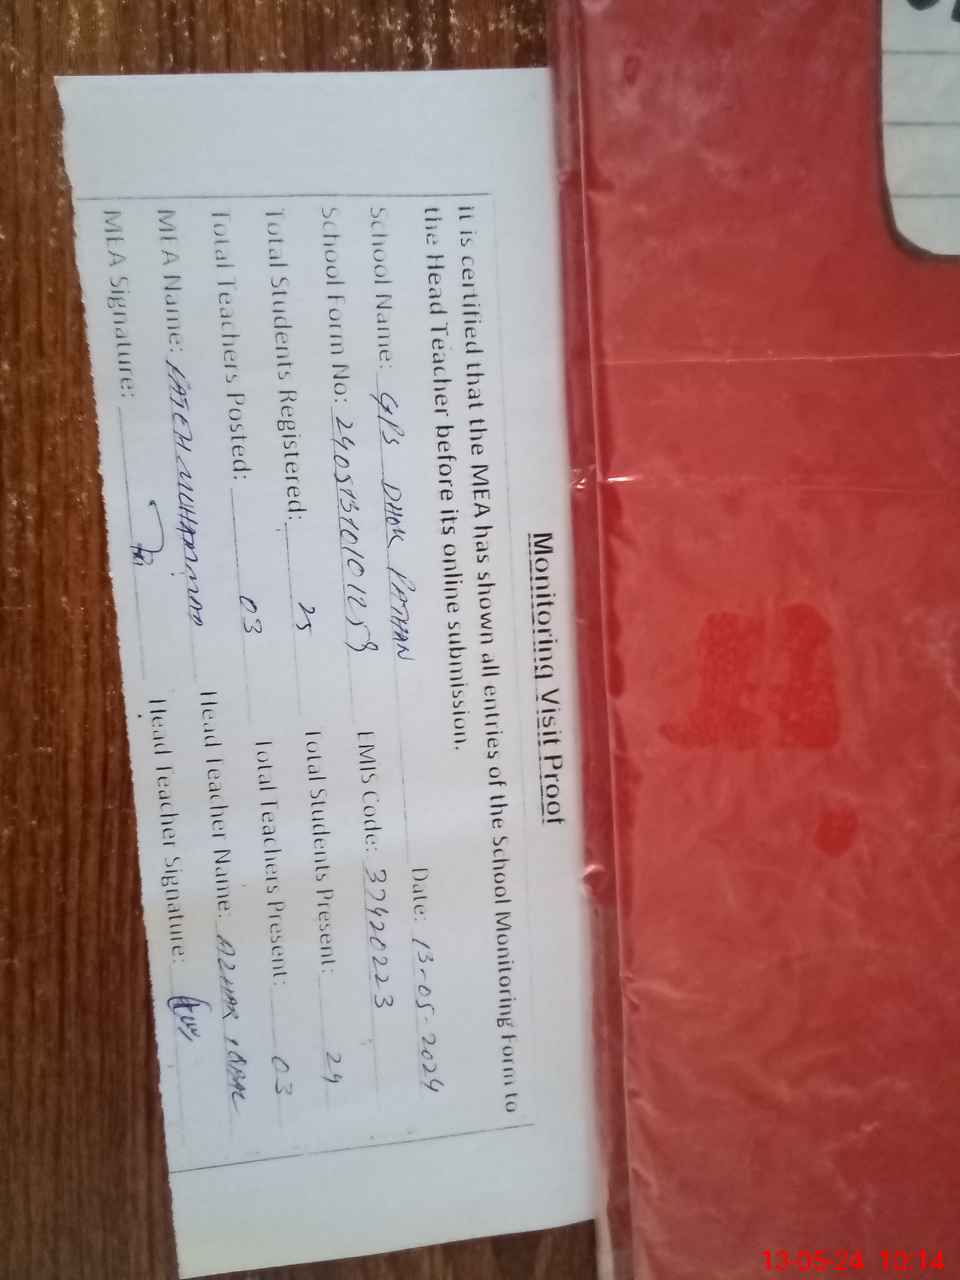 Monitoring Visit Proof
it is certified that the MEA has shown all entries of the School Monitoring Form to
the Head Teacher before its online submission.
School Name: GPS DHOK PATHAN Date: 13-05-2024
School Form No: EMIS Code: 37420223
Total Students Registered: 25 Total Students Present: 24
Total Teachers Posted: 03 Total Teachers Present: 03
MEA Name: FATEH MUHAMMAD Head Teacher Name: AZHAR IQBAL
MEA Signature: Head Teacher Signature:
13-05-24 10:14